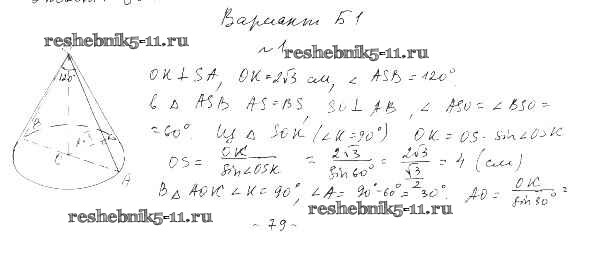 Вариант Б1
reshebnik5-11.ru
~1 reshebnik5-11.ru
120°
OK ⊥ SA, OK = 2√3 см, ∠ ASB = 120°.
В △ ASB AS = BS, SO ⊥ AB, ∠ ASO = ∠ BSO =
= 60°. Из △ SOK (∠K = 90°) OK = OS · sin∠OSK
OS = OK / sin∠OSK = 2√3 / sin 60° = 2√3 / (√3/2) = 4 (см)
В △ AOK ∠K = 90°, ∠A = 90° - 60° = 30°. AO = OK / sin 30° =
B
K
O
A
reshebnik5-11.ru
reshebnik5-11.ru
- 79 -